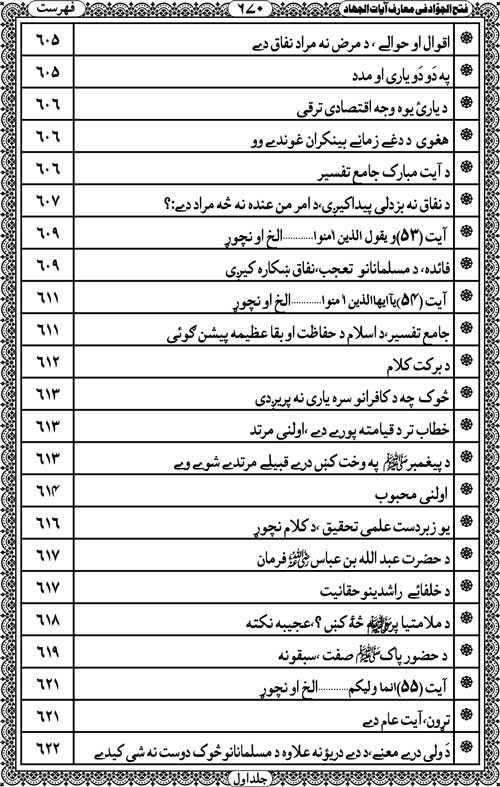 فتح الجوّاد فی معارف آیات الجهاد ۶۷۰ فهرست
اقوال او حوالے ، د مرض نه مراد نفاق دے ۶۰۵
په دَو دَو یاری او مدد ۶۰۵
د یارئ یوه وجه اقتصادی ترقی ۶۰۶
هغوی د دغے زمانے بینکران غوندے وو ۶۰۶
د آیت مبارک جامع تفسیر ۶۰۶
د نفاق نه بزدلی پیدا کیږی،د امر من عنده نه څه مراد دے:؟ ۶۰۷
آیت (۵۳)و یقول الذین اٰمنوا............الخ او نچوړ ۶۰۹
فائده، د مسلمانانو تعجب،نفاق ښکاره کیږی ۶۰۹
آیت (۵۴)یآایهاالذین اٰمنوا............الخ او نچوړ ۶۱۱
جامع تفسیر،د اسلام د حفاظت او بقا عظیمه پیشن ګوئی ۶۱۱
د برکت کلام ۶۱۲
څوک چه د کافرانو سره یاری نه پریږدی ۶۱۳
خطاب تر د قیامته پورے دے ،اولنی مرتد ۶۱۳
د پیغمبرﷺ په وخت کښ درے قبیلے مرتدے شوے وے ۶۱۳
اولنی محبوب ۶۱۴
یو زبردست علمی تحقیق ،د کلام نچوړ ۶۱۶
د حضرت عبد الله بن عباس رضی اللہ عنہ فرمان ۶۱۷
د خلفائے راشدینو حقانیت ۶۱۷
د ملامتیا پرﷺ څۀ کښ ؟،عجیبه نکته ۶۱۸
د حضور پاکﷺ صفت ،سبقونه ۶۱۹
آیت (۵۵)انما ولیکم............الخ او نچوړ ۶۲۱
تړون،آیت عام دے ۶۲۱
دَ ولی درے معنے،د دے دریؤ نه علاوه د مسلمانانو څوک دوست نه شی کیدے ۶۲۲
جلد اول